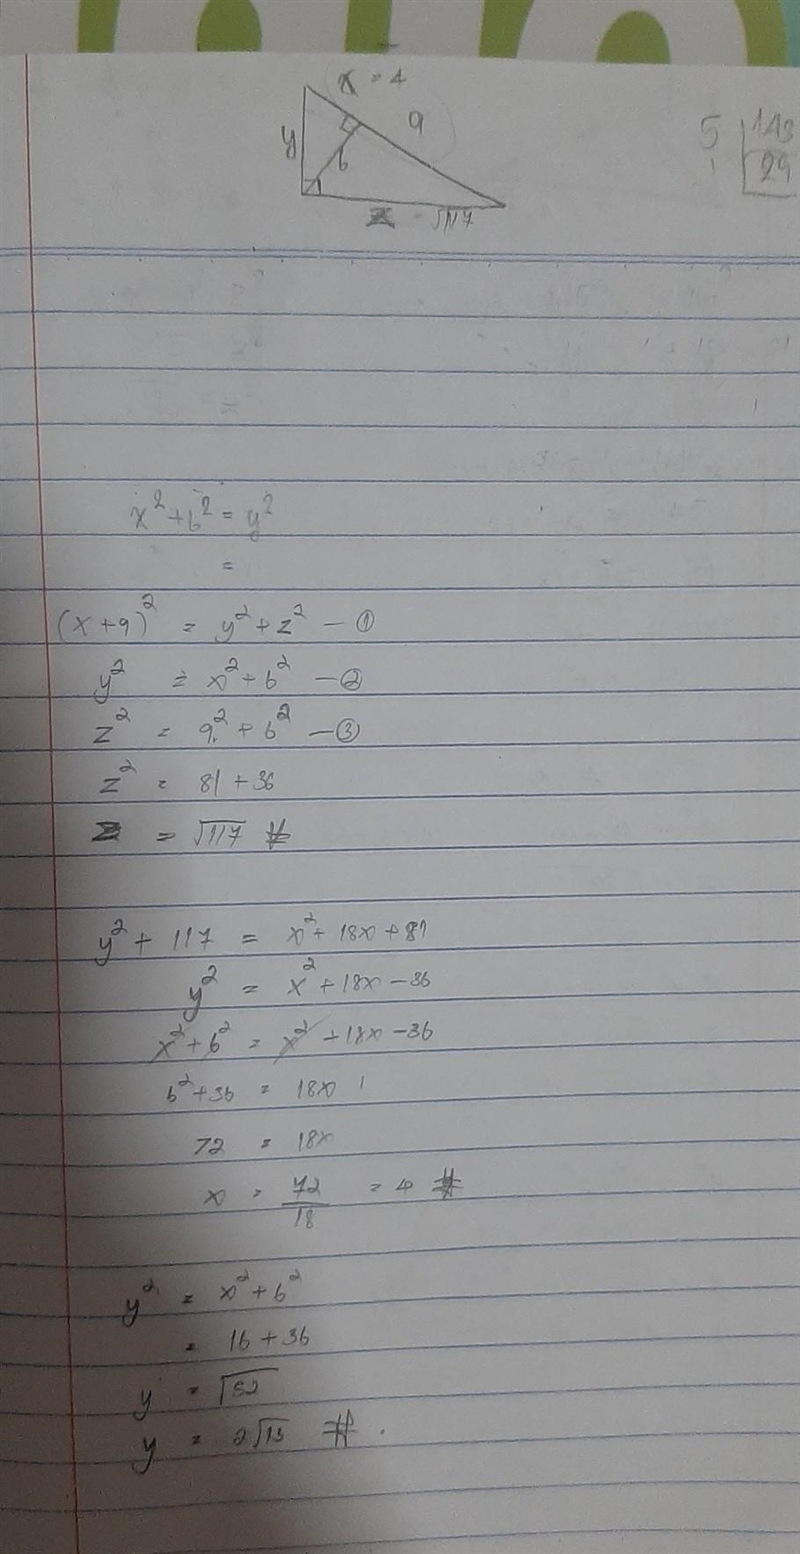 x = 4
9
y
6
z = √117
5
143
29
x² + 6² = y²
=
(x + 9)² = y² + z² — ①
y² = x² + 6² — ②
z² = 9² + 6² — ③
z² = 81 + 36
z = √117 #
y² + 117 = x² + 18x + 81
y² = x² + 18x - 36
x² + 6² = x² + 18x - 36
6² + 36 = 18x
72 = 18x
x = 72/18 = 4 #
y² = x² + 6²
= 16 + 36
y = √52
y = 2√13 #.